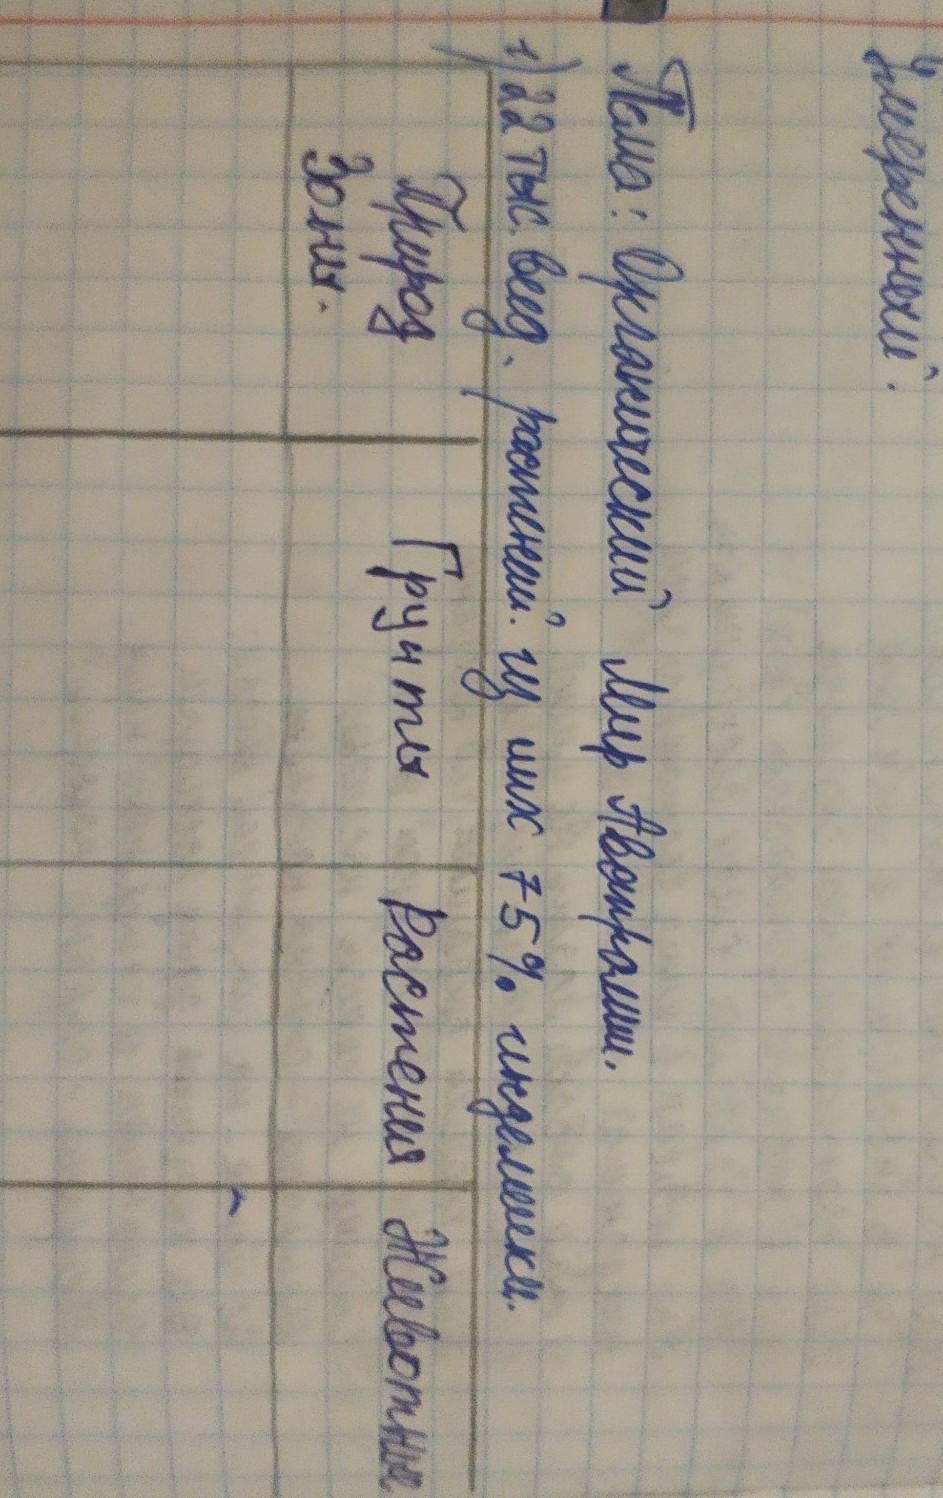 Умеренный.
Тема: Органический Мир Австралии.
1) 22 тыс. вид. растений. из них 75% индемики.
Природ Грунты Растения Животные
Зоны.